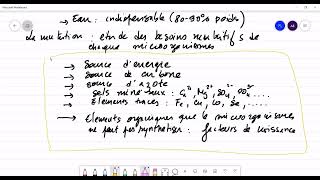 → Eau : indispensable (80-90% poids)
La nutrition : étude des besoins nutritifs de
chaque microorganismes
→ Source d'énergie
→ Source de carbone
→ source d'azote
→ Sels minéraux : Ca²⁺, Mg²⁺, SO₄²⁻, PO₄³⁻ ....
→ Elements traces : Fe, Cu, Co, Se, ....
→ Elements organiques que le microorganismes
ne peut pas synthétiser : facteurs de croissance